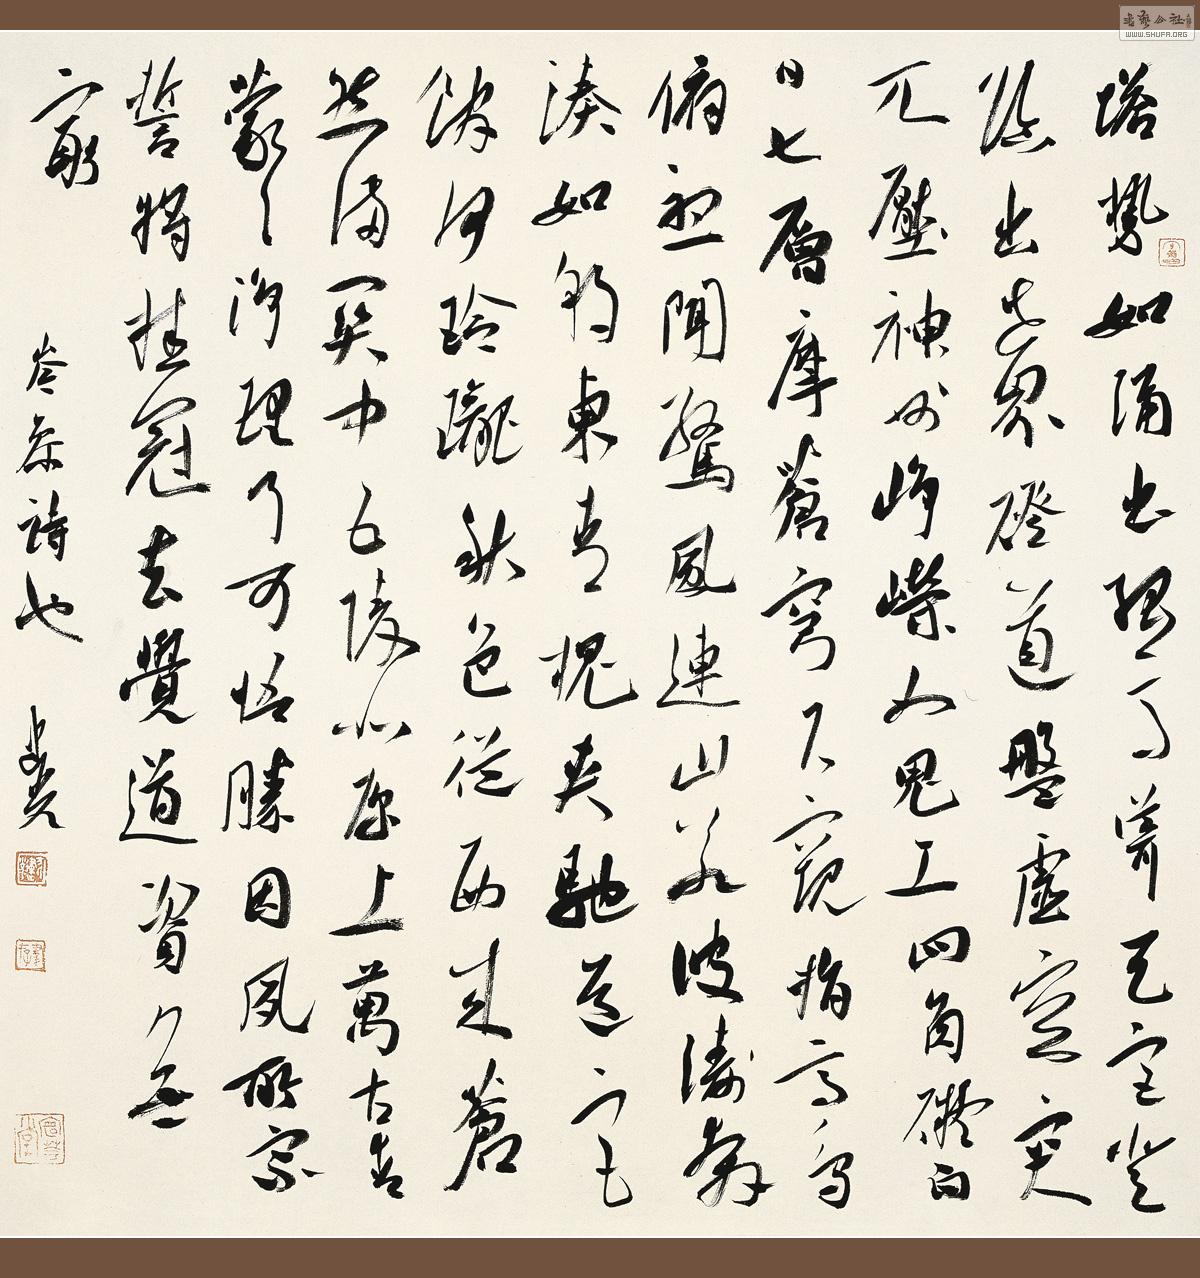 書藝公社
WWW.SHUFA.ORG
塔勢如涌出孤高聳天宮登
臨出世界磴道盤虛空突
兀壓神州崢嶸如鬼工四角礙白
日七層摩蒼穹下窺指高鳥
俯聽聞驚風連山若波濤奔
湊如朝東青槐夾馳道宮
館何玲瓏秋色從西來蒼
然滿關中五陵北原上萬古青
蒙々淨理了可悟勝因夙所宗
誓將挂冠去覺道資無
窮
岑參詩也